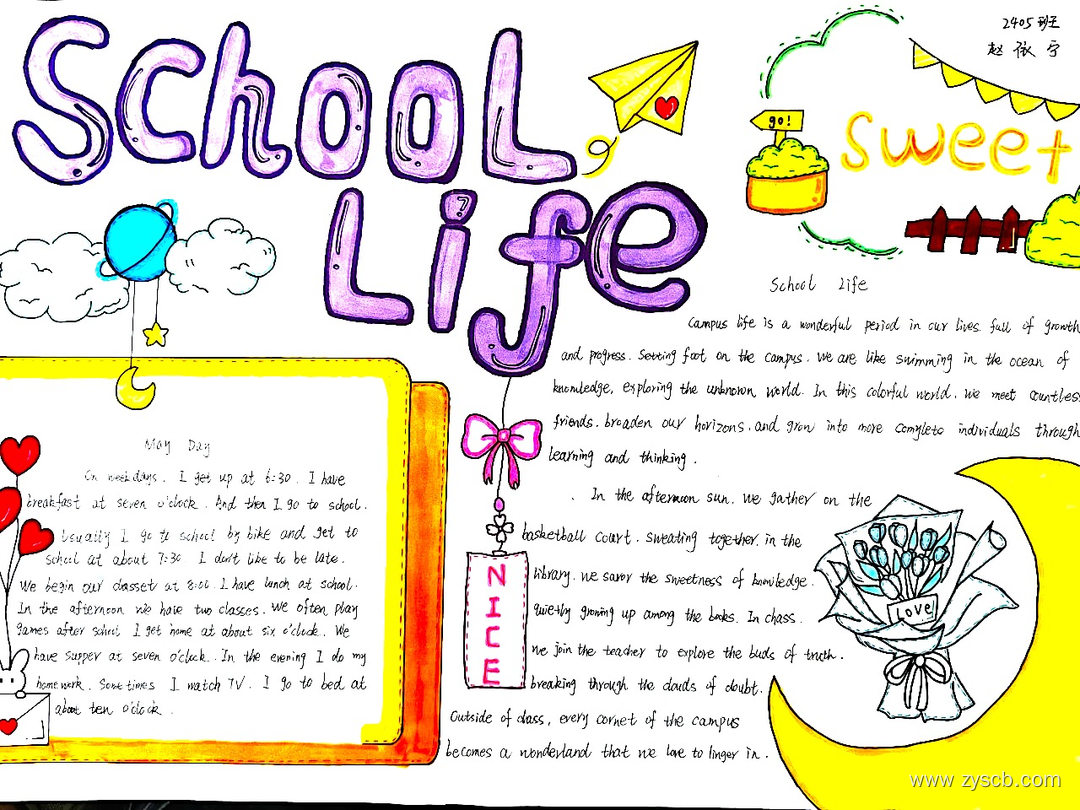 School
Life
2405班
赵依宁
go!
Sweet
School Life
Campus life is a wonderful period in our lives. full of growth
and progress. Setting foot on the campus. we are like swimming in the ocean of
knowledge, exploring the unknown world. In this colorful world. we meet countless
friends. broaden our horizons. and grow into more completo individuals through
learning and thinking.
In the afternoon sun. we gather on the
basketball court. sweating together. in the
library. we savor the sweetness of knowledge.
quietly growing up among the books. In chass.
we join the teacher to explore the buds of truth.
breaking through the clouds of doubt.
Outside of class, every cornet of the campus
becomes a wonderland that we love to linger in.
NICE
LOVE
May Day
On weekdays. I get up at 6:30. I have
breakfast at seven o'clock. And then I go to school.
Usually I go to school by bike and get to
school at about 7:30. I don't like to be late.
We begin our classet at 8:00. I have lunch at school.
In the afternoon we have two classes. We often play
games after school I get home at about six o'clock. We
have supper at seven o'clock. In the evening I do my
homework. Sometimes I watch TV. I go to bed at
about ten o'clock.
www.zyscb.com